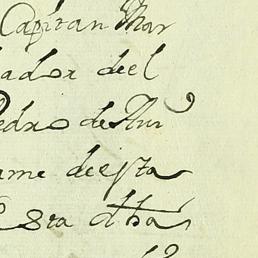 Capitan Mar
ador del
edro de Mur
ame desta
sra dha